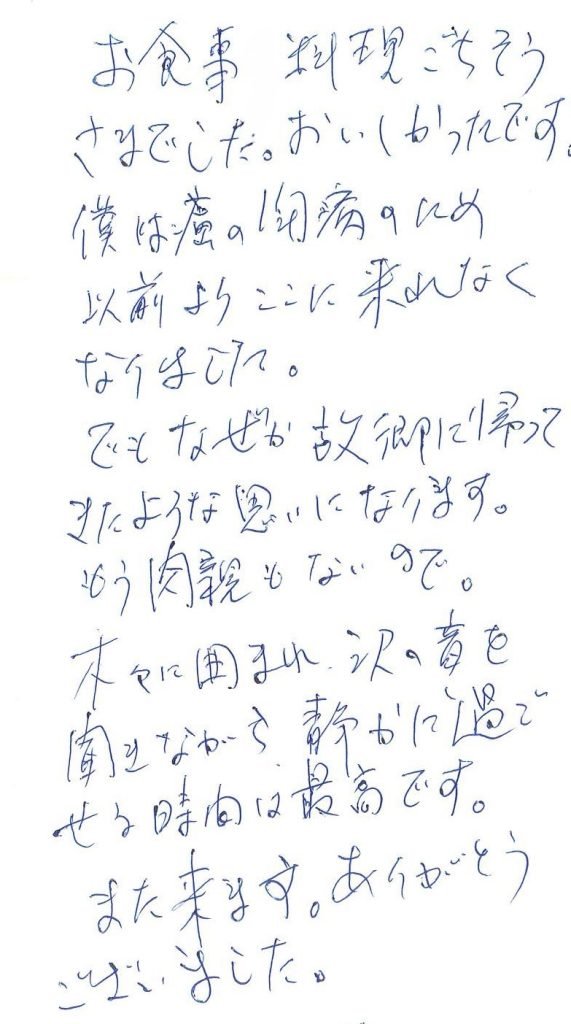 お食事 料理ごちそう
さまでした。おいしかったです。
僕は癌の闘病のため
以前よりここに来れなく
なりました。
でもなぜか故郷に帰って
きたような思いになります。
もう肉親もないので。
木々に囲まれ、沢の音を
聞きながら静かに過ご
せる時間は最高です。
また来ます。ありがとう
ございました。